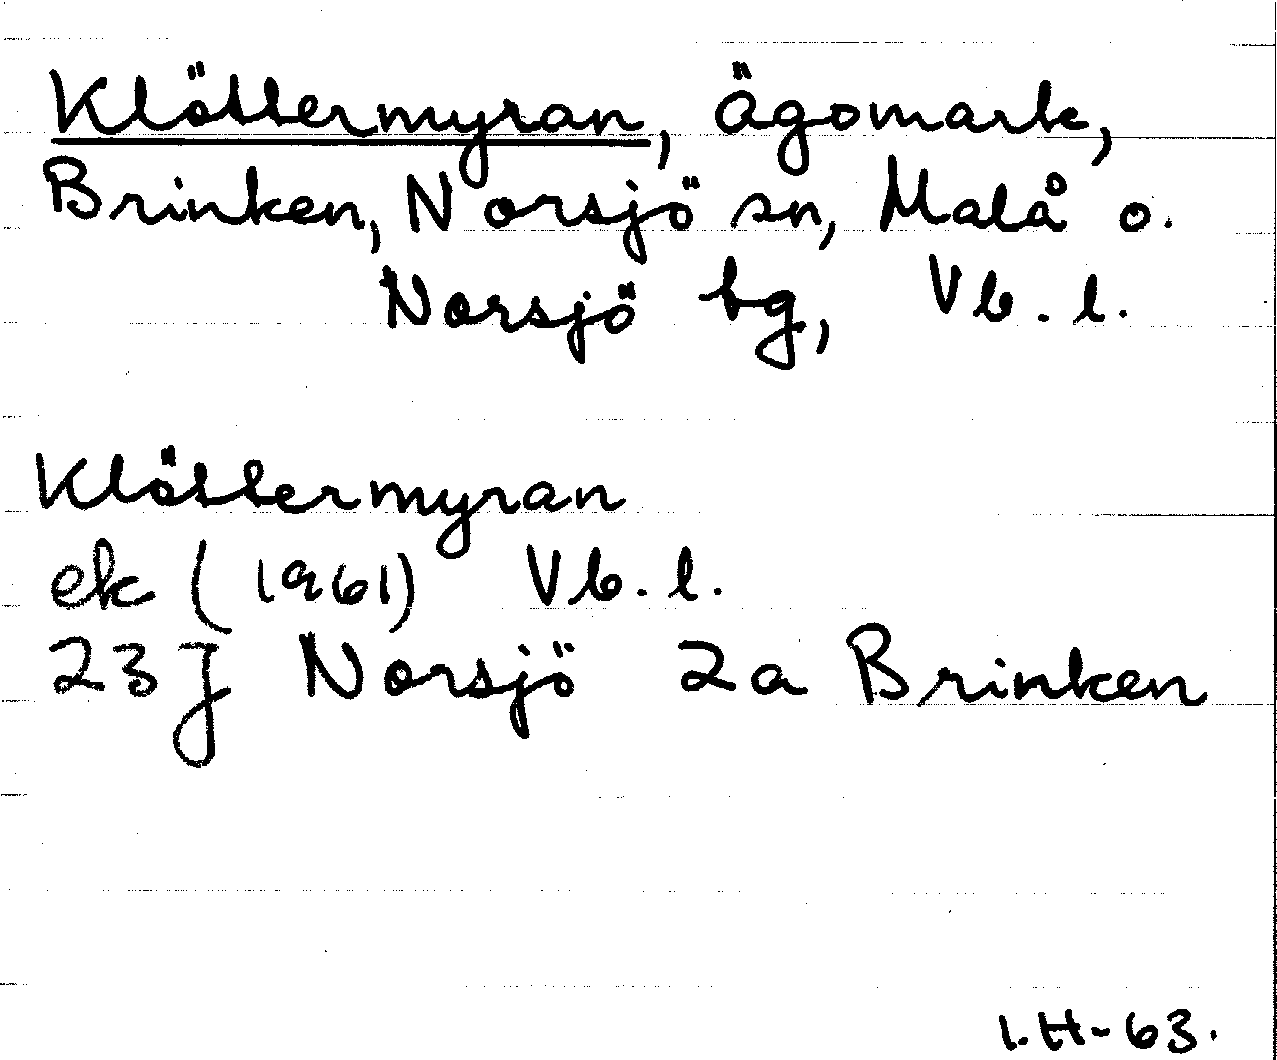 Klöttermyran, ägomark,
Brinken, Norsjö sn, Malå o.
Norsjö bg, Vb. l.
Klöttermyran
ek (1961) Vb. l.
23 J Norsjö 2a Brinken
I.H-63.